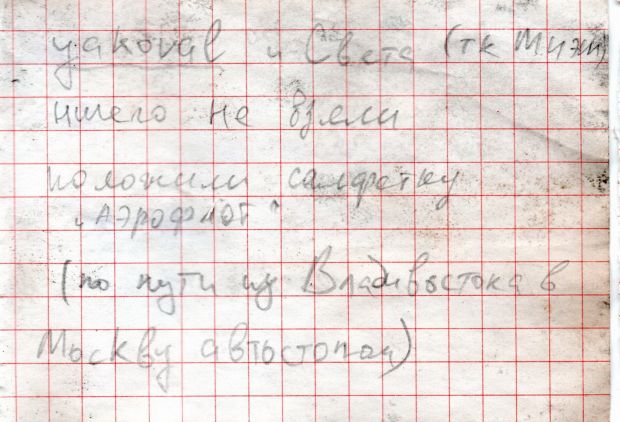 yakoval и Света (тк МИЭМ)
ничего не взяли
положили салфетку
"АЭРОФЛОТ"
(по пути из Владивостока в
Москву автостопом)